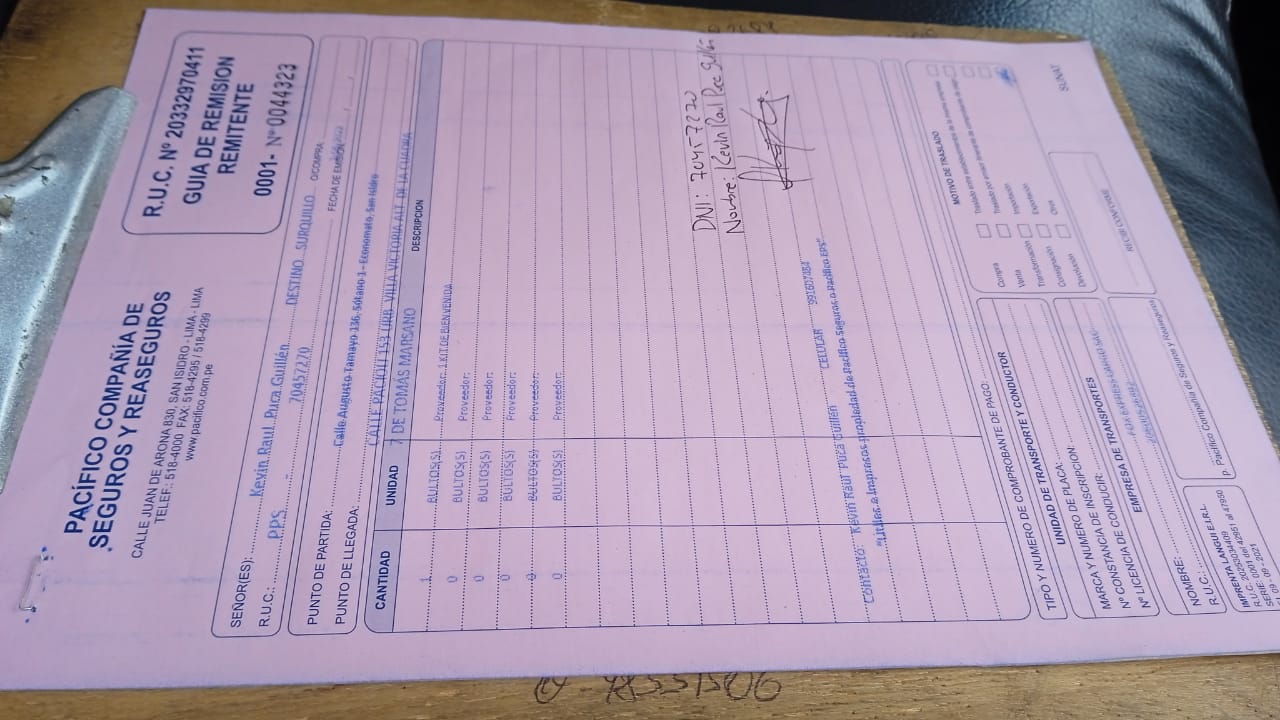 PACÍFICO COMPAÑÍA DE
SEGUROS Y REASEGUROS
CALLE JUAN DE ARONA 830, SAN ISIDRO - LIMA - LIMA
TELEF.: 518-4000 FAX: 518-4295 / 518-4299
www.pacifico.com.pe
R.U.C. Nº 20332970411
GUIA DE REMISION
REMITENTE
0001- Nº 0044323
SEÑOR(ES): Kevin Raul Puca Guillén
R.U.C.: PPS - 70457270 DESTINO SURQUILLO O/COMPRA
FECHA DE EMISIÓN
PUNTO DE PARTIDA: Calle Augusto Tamayo 136, Sótano 1 - Economato, San Isidro
PUNTO DE LLEGADA: CALLE PACIOLI 153 URB. VILLA VICTORIA ALT. DE LA CUADRA
7 DE TOMAS MARSANO
CANTIDAD UNIDAD DESCRIPCION
1 BULTOS(S) Proveedor: 1 KIT DE BIENVENIDA
0 BULTOS(S) Proveedor:
0 BULTOS(S) Proveedor:
0 BULTOS(S) Proveedor:
0 BULTOS(S) Proveedor:
0 BULTOS(S) Proveedor:
DNI: 70457270
Nombre: Kevin Raul
Contacto: Kevin Raul Puca Guillén CELULAR
"Utiles e Impresos propiedad de Pacífico Seguros o Pacifico EPS"
TIPO Y NUMERO DE COMPROBANTE DE PAGO:
UNIDAD DE TRANSPORTE Y CONDUCTOR
MARCA Y NUMERO DE PLACA:
Nº CONSTANCIA DE INSCRIPCION:
Nº LICENCIA DE CONDUCIR:
EMPRESA DE TRANSPORTES
FOX EXPRESS CARGO SAC
NOMBRE:
R.U.C.:
MOTIVO DE TRASLADO
Compra
Venta
Transformación
Consignación
Devolución
Traslado entre establecimientos de la misma empresa
Traslado por emisor itinerante de comprobante de pago
Importación
Exportación
Otros
IMPRENTA LANGUI E.I.R.L.
p. Pacífico Compañía de Seguros y Reaseguros
RECIBI CONFORME
SUNAT